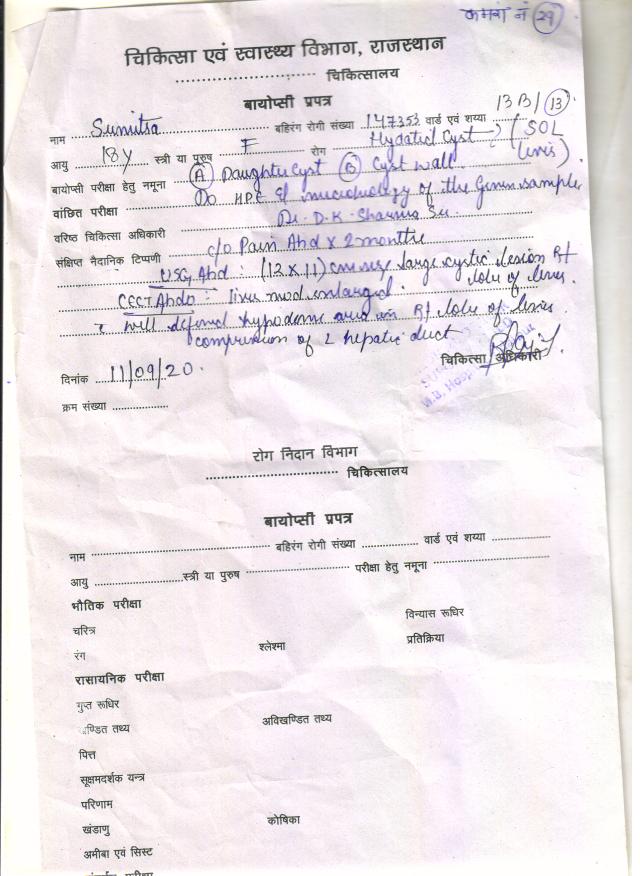 कमरा नं 29
चिकित्सा एवं स्वास्थ्य विभाग, राजस्थान
................................. चिकित्सालय
बायोप्सी प्रपत्र
13 B/ 13
नाम Sumitra बहिरंग रोगी संख्या 147353 वार्ड एवं शय्या
आयु 18Y स्त्री या पुरुष F रोग Hydatid Cyst (SOL
बायोप्सी परीक्षा हेतु नमूना (A) Daughter Cyst (B) Cyst wall liver)
वांछित परीक्षा Do HPE & microbiology of the Given sample
वरिष्ठ चिकित्सा अधिकारी Dr. D.K. Sharma Sir
संक्षिप्त नैदानिक टिप्पणी c/o Pain Abd x 2 months
USG Abd : (12 x 11) cm size large cystic lesion Rt lobe of liver.
CECT Abdo : liver mod enlarged.
c well defined hypodense area in Rt lobe of liver
compression of L hepatic duct
चिकित्सा अधिकारी
दिनांक 11/09/20.
क्रम संख्या ..................
रोग निदान विभाग
................................. चिकित्सालय
बायोप्सी प्रपत्र
नाम ................................. बहिरंग रोगी संख्या .............. वार्ड एवं शय्या ..............
आयु ......................स्त्री या पुरुष ......................... परीक्षा हेतु नमूना .............................
भौतिक परीक्षा
चरित्र विन्यास रूधिर
रंग श्लेश्मा प्रतिक्रिया
रासायनिक परीक्षा
गुप्त रूधिर
खण्डित तथ्य अविखण्डित तथ्य
पित्त
सूक्षमदर्शक यन्त्र
परिणाम
खंडाणु कोषिका
अमीबा एवं सिस्ट